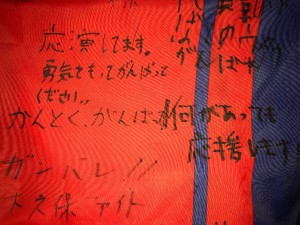 応演してます。
勇気をもってがんばって
ください。
かんとく、がんばれ
何があっても
応援します
ガンバレ!!
大久保 ファイト